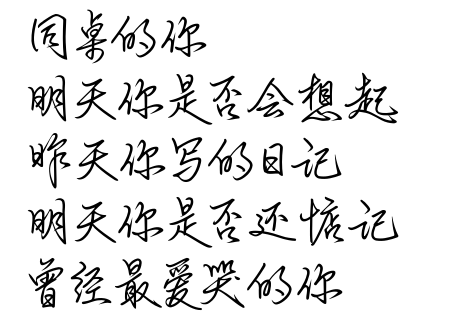 同桌的你
明天你是否会想起
昨天你写的日记
明天你是否还惦记
曾经最爱哭的你